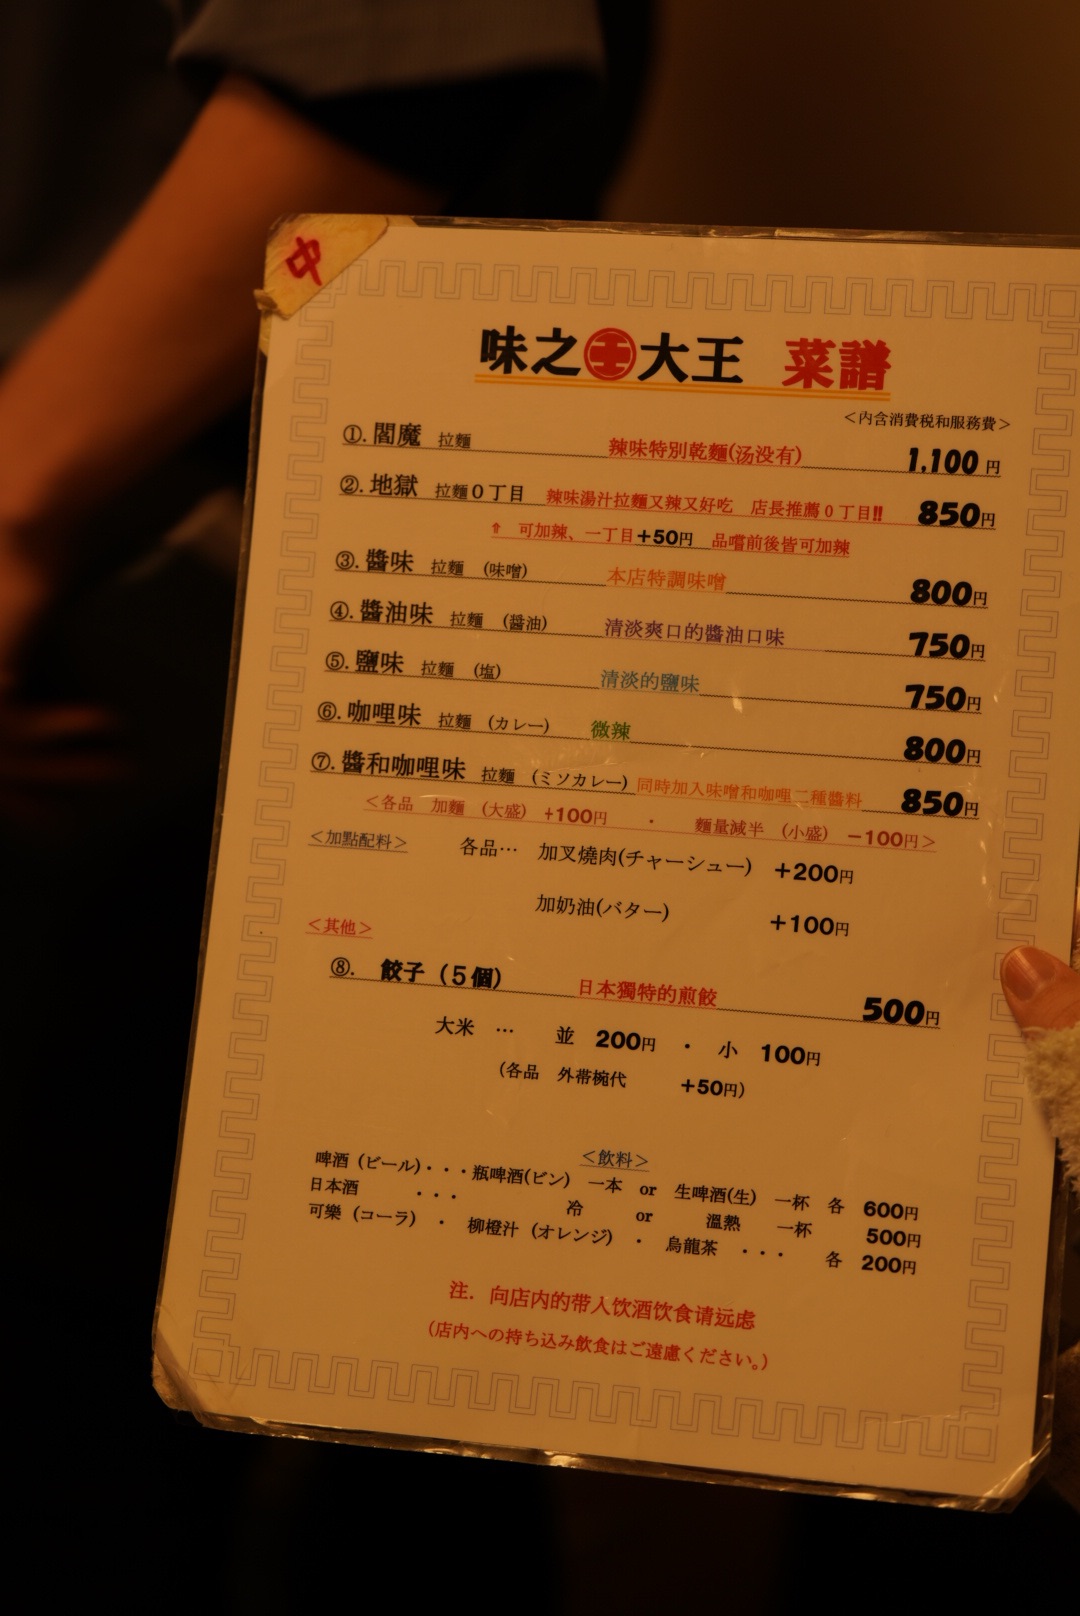 中
味之王大王 菜譜
＜内含消費税和服務費＞
①. 閻魔 拉麵 辣味特別乾麵(汤没有) 1,100円
②. 地獄 拉麵０丁目 辣味湯汁拉麵又辣又好吃 店長推薦０丁目!! 850円
⇑ 可加辣、一丁目＋50円 品嚐前後皆可加辣
③. 醬味 拉麵 (味噌) 本店特調味噌 800円
④. 醬油味 拉麵 (醤油) 清淡爽口的醬油口味 750円
⑤. 鹽味 拉麵 (塩) 清淡的鹽味 750円
⑥. 咖哩味 拉麵 (カレー) 微辣 800円
⑦. 醬和咖哩味 拉麵 (ミソカレー) 同時加入味噌和咖哩二種醬料 850円
＜各品 加麵 (大盛) +100円 ・ 麵量減半 (小盛) －100円＞
＜加點配料＞ 各品… 加叉燒肉(チャーシュー) ＋200円
加奶油(バター) ＋100円
＜其他＞
⑧. 餃子（５個） 日本獨特的煎餃 500円
大米 … 並 200円 ・ 小 100円
(各品 外帯椀代 ＋50円)
＜飲料＞
啤酒 (ビール)・・・瓶啤酒(ビン) 一本 or 生啤酒(生) 一杯 各 600円
日本酒 ・・・ 冷 or 溫熱 一杯 500円
可樂 (コーラ) ・ 柳橙汁 (オレンジ) ・ 烏龍茶 ・・・ 各 200円
注. 向店内的带人饮酒饮食请远虑
(店内への持ち込み飲食はご遠慮ください。)